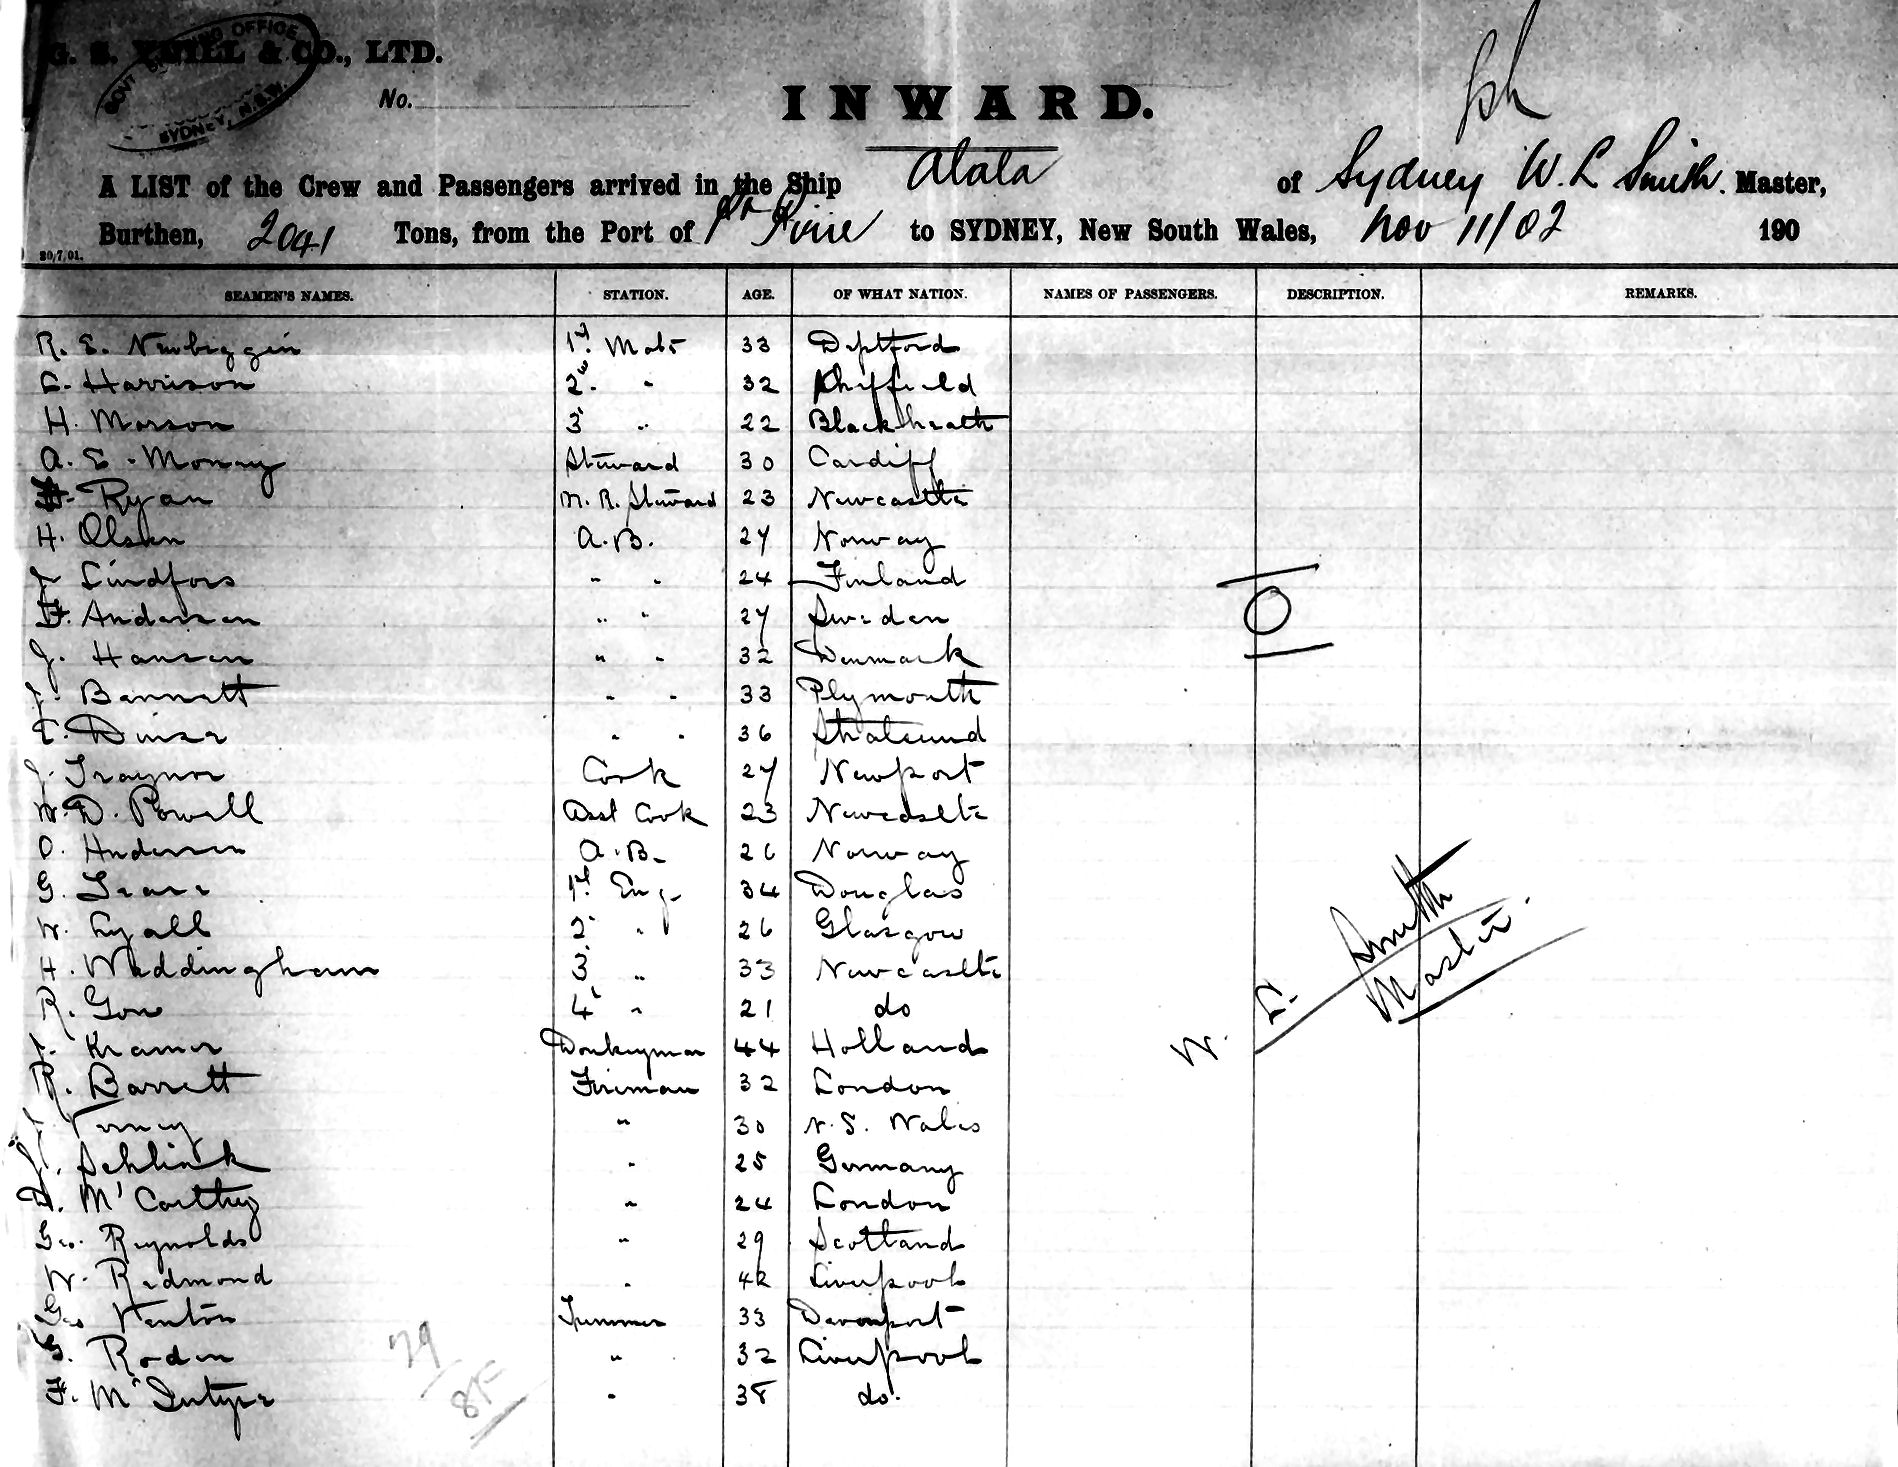 G. S. YUILL & CO., LTD.
GOVT SHIPPING OFFICE
SYDNEY, N.S.W.
No.
INWARD.
A LIST of the Crew and Passengers arrived in the Ship Alala of Sydney W. L Smith. Master,
Burthen, 2041 Tons, from the Port of Pt Pirie to SYDNEY, New South Wales, Nov 11/02 190
30/7/01.
SEAMEN'S NAMES. STATION. AGE. OF WHAT NATION. NAMES OF PASSENGERS. DESCRIPTION. REMARKS.
R. E. Newbiggin 1st Mate 33 Deptford
C. Harrison 2nd " 32 Sheffield
H. Morson 3 " 22 Blackheath
A. E. Money Steward 30 Cardiff
Ryan M. R. Steward 23 Newcastle
H. Olsen A.B. 27 Norway
J. Lindfors " " 24 Finland
F. Andersen " " 27 Sweden
J. Hansen " " 32 Denmark
J. Bennett " " 33 Plymouth
" " 36 Stralsund
J. Traynor Cook 27 Newport
W. D. Powell Asst Cook 23 Newcaslte
O. Andersen A.B. 26 Norway
G. 1st Eng. 34 Douglas
W. Lyall 2 " 26 Glasgow
H. Waddingham 3 " 33 Newcaslte
R. Gow 4 " 21 do
J. Kramer Donkeyman 44 Holland
R. Barrett Fireman 32 London
" 30 N. S. Wales
Schlink " 25 Germany
D. McCarthy " 24 London
Geo. Reynolds " 29 Scotland
W. Redmond " 42 Liverpool
Geo Kenton Trimmer 33 Davenport
G. Roden " 32 Liverpool
F. McIntyre " 38 do.
W. L. Smith
Master.
29